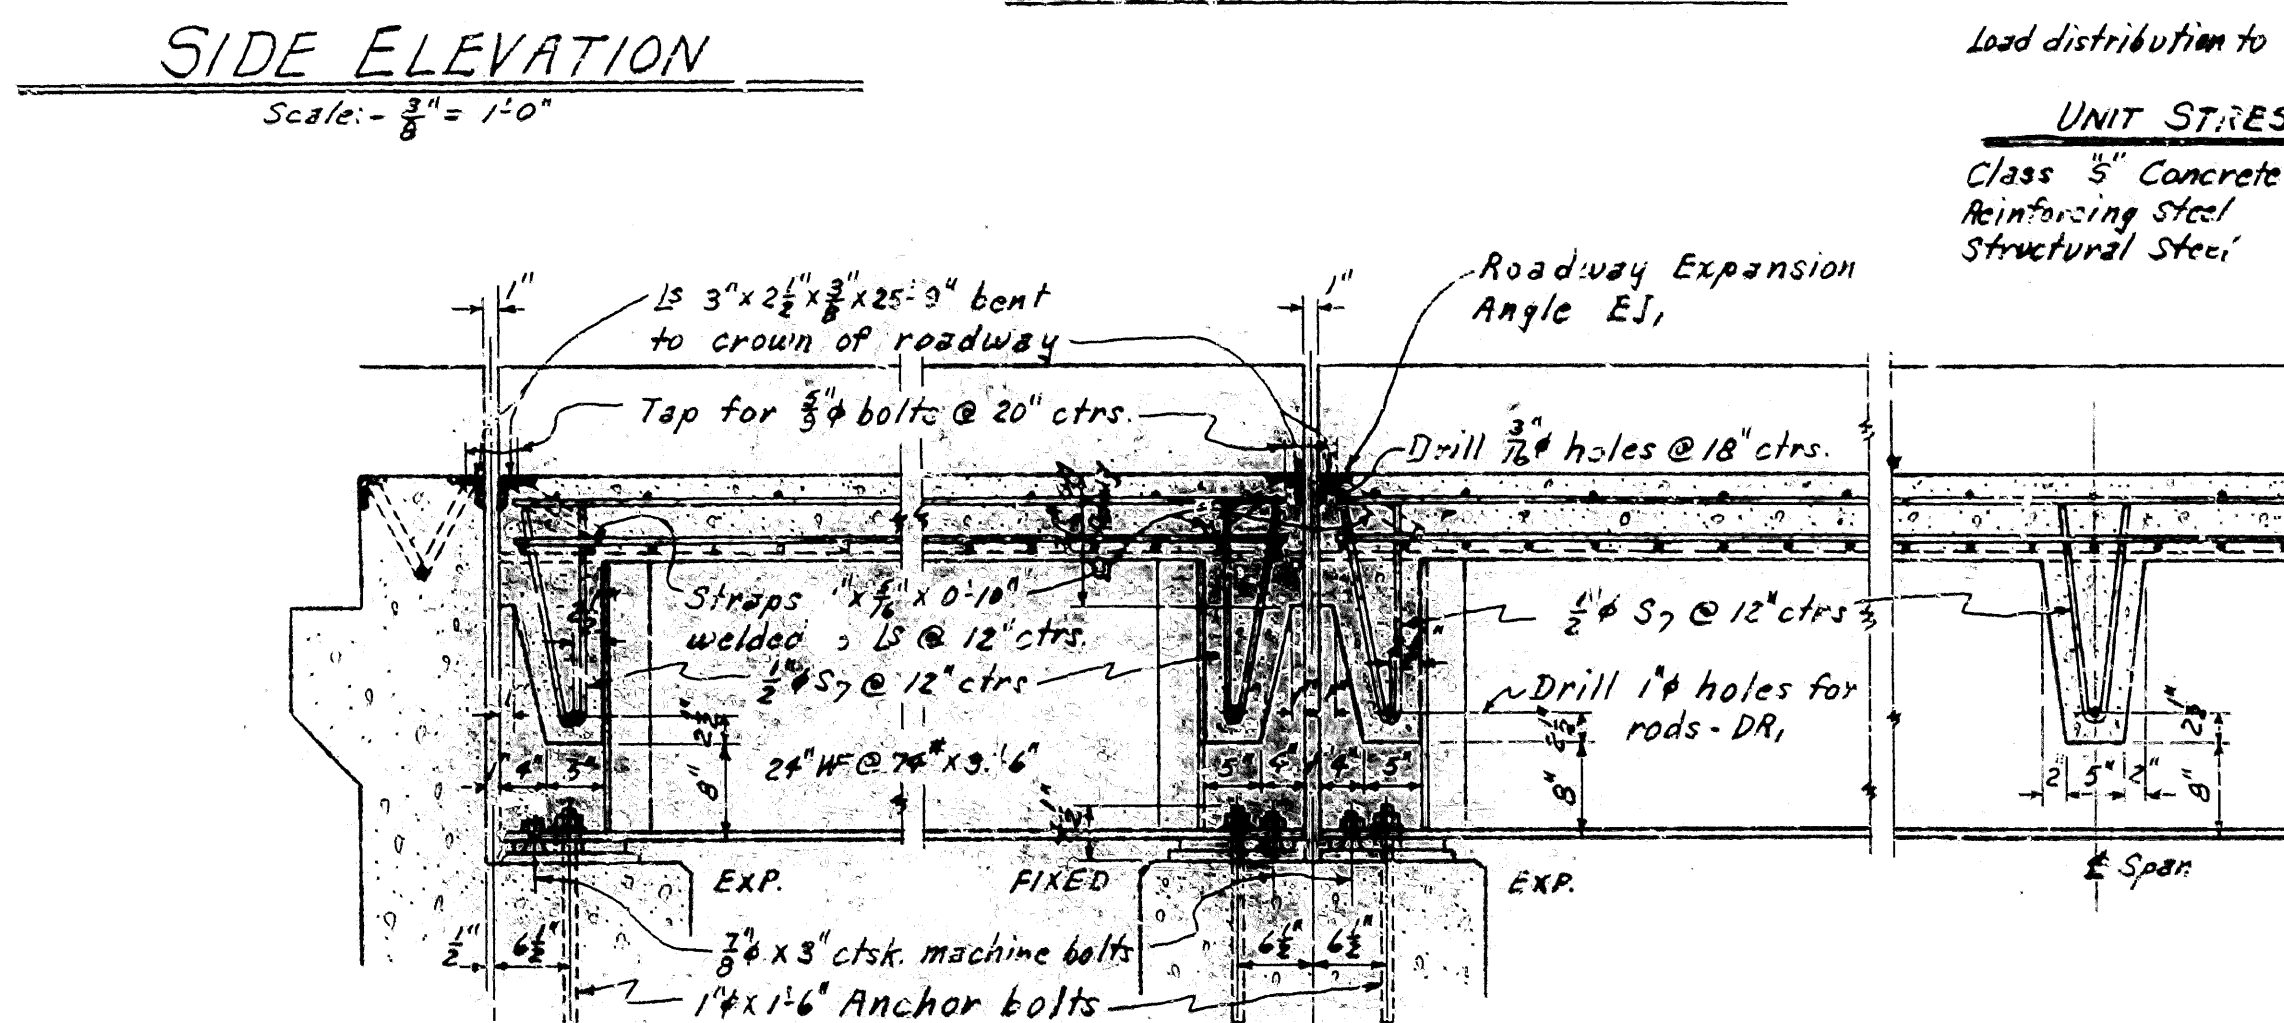 SIDE ELEVATION
Scale:- 3/8" = 1'-0"
Load distribution to
UNIT STRES
Class "S" Concrete
Reinforcing Steel
Structural Steel
1"
Ls 3" x 2 1/2" x 3/8" x 25'-9" bent
to crown of roadway
1"
Roadway Expansion
Angle EJ,
Tap for 5/8"ϕ bolts @ 20" ctrs.
Drill 3/16"ϕ holes @ 18" ctrs.
Straps "x 5/16" x 0'-10"
welded Ls @ 12" ctrs.
1/2"ϕ S7 @ 12" ctrs
1/2"ϕ S7 @ 12" ctrs
Drill 1"ϕ holes for
rods - DR,
2 1/2"
2 1/2"
2 1/2"
24" WF @ 74# x
8"
8"
8"
1" 4" 5"
5" 4" 4" 5"
2" 5" 2"
EXP.
FIXED
EXP.
℄ Span
1/2" 6 1/2"
6 1/2" 6 1/2"
7/8"ϕ x 3" ctsk. machine bolts
1"ϕ x 1'-6" Anchor bolts